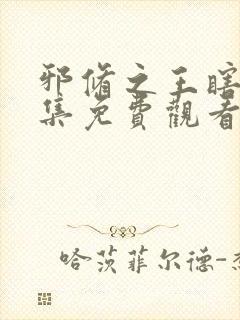 邪脩之王瞎
集免費觀看
哈茨菲尔德-杰